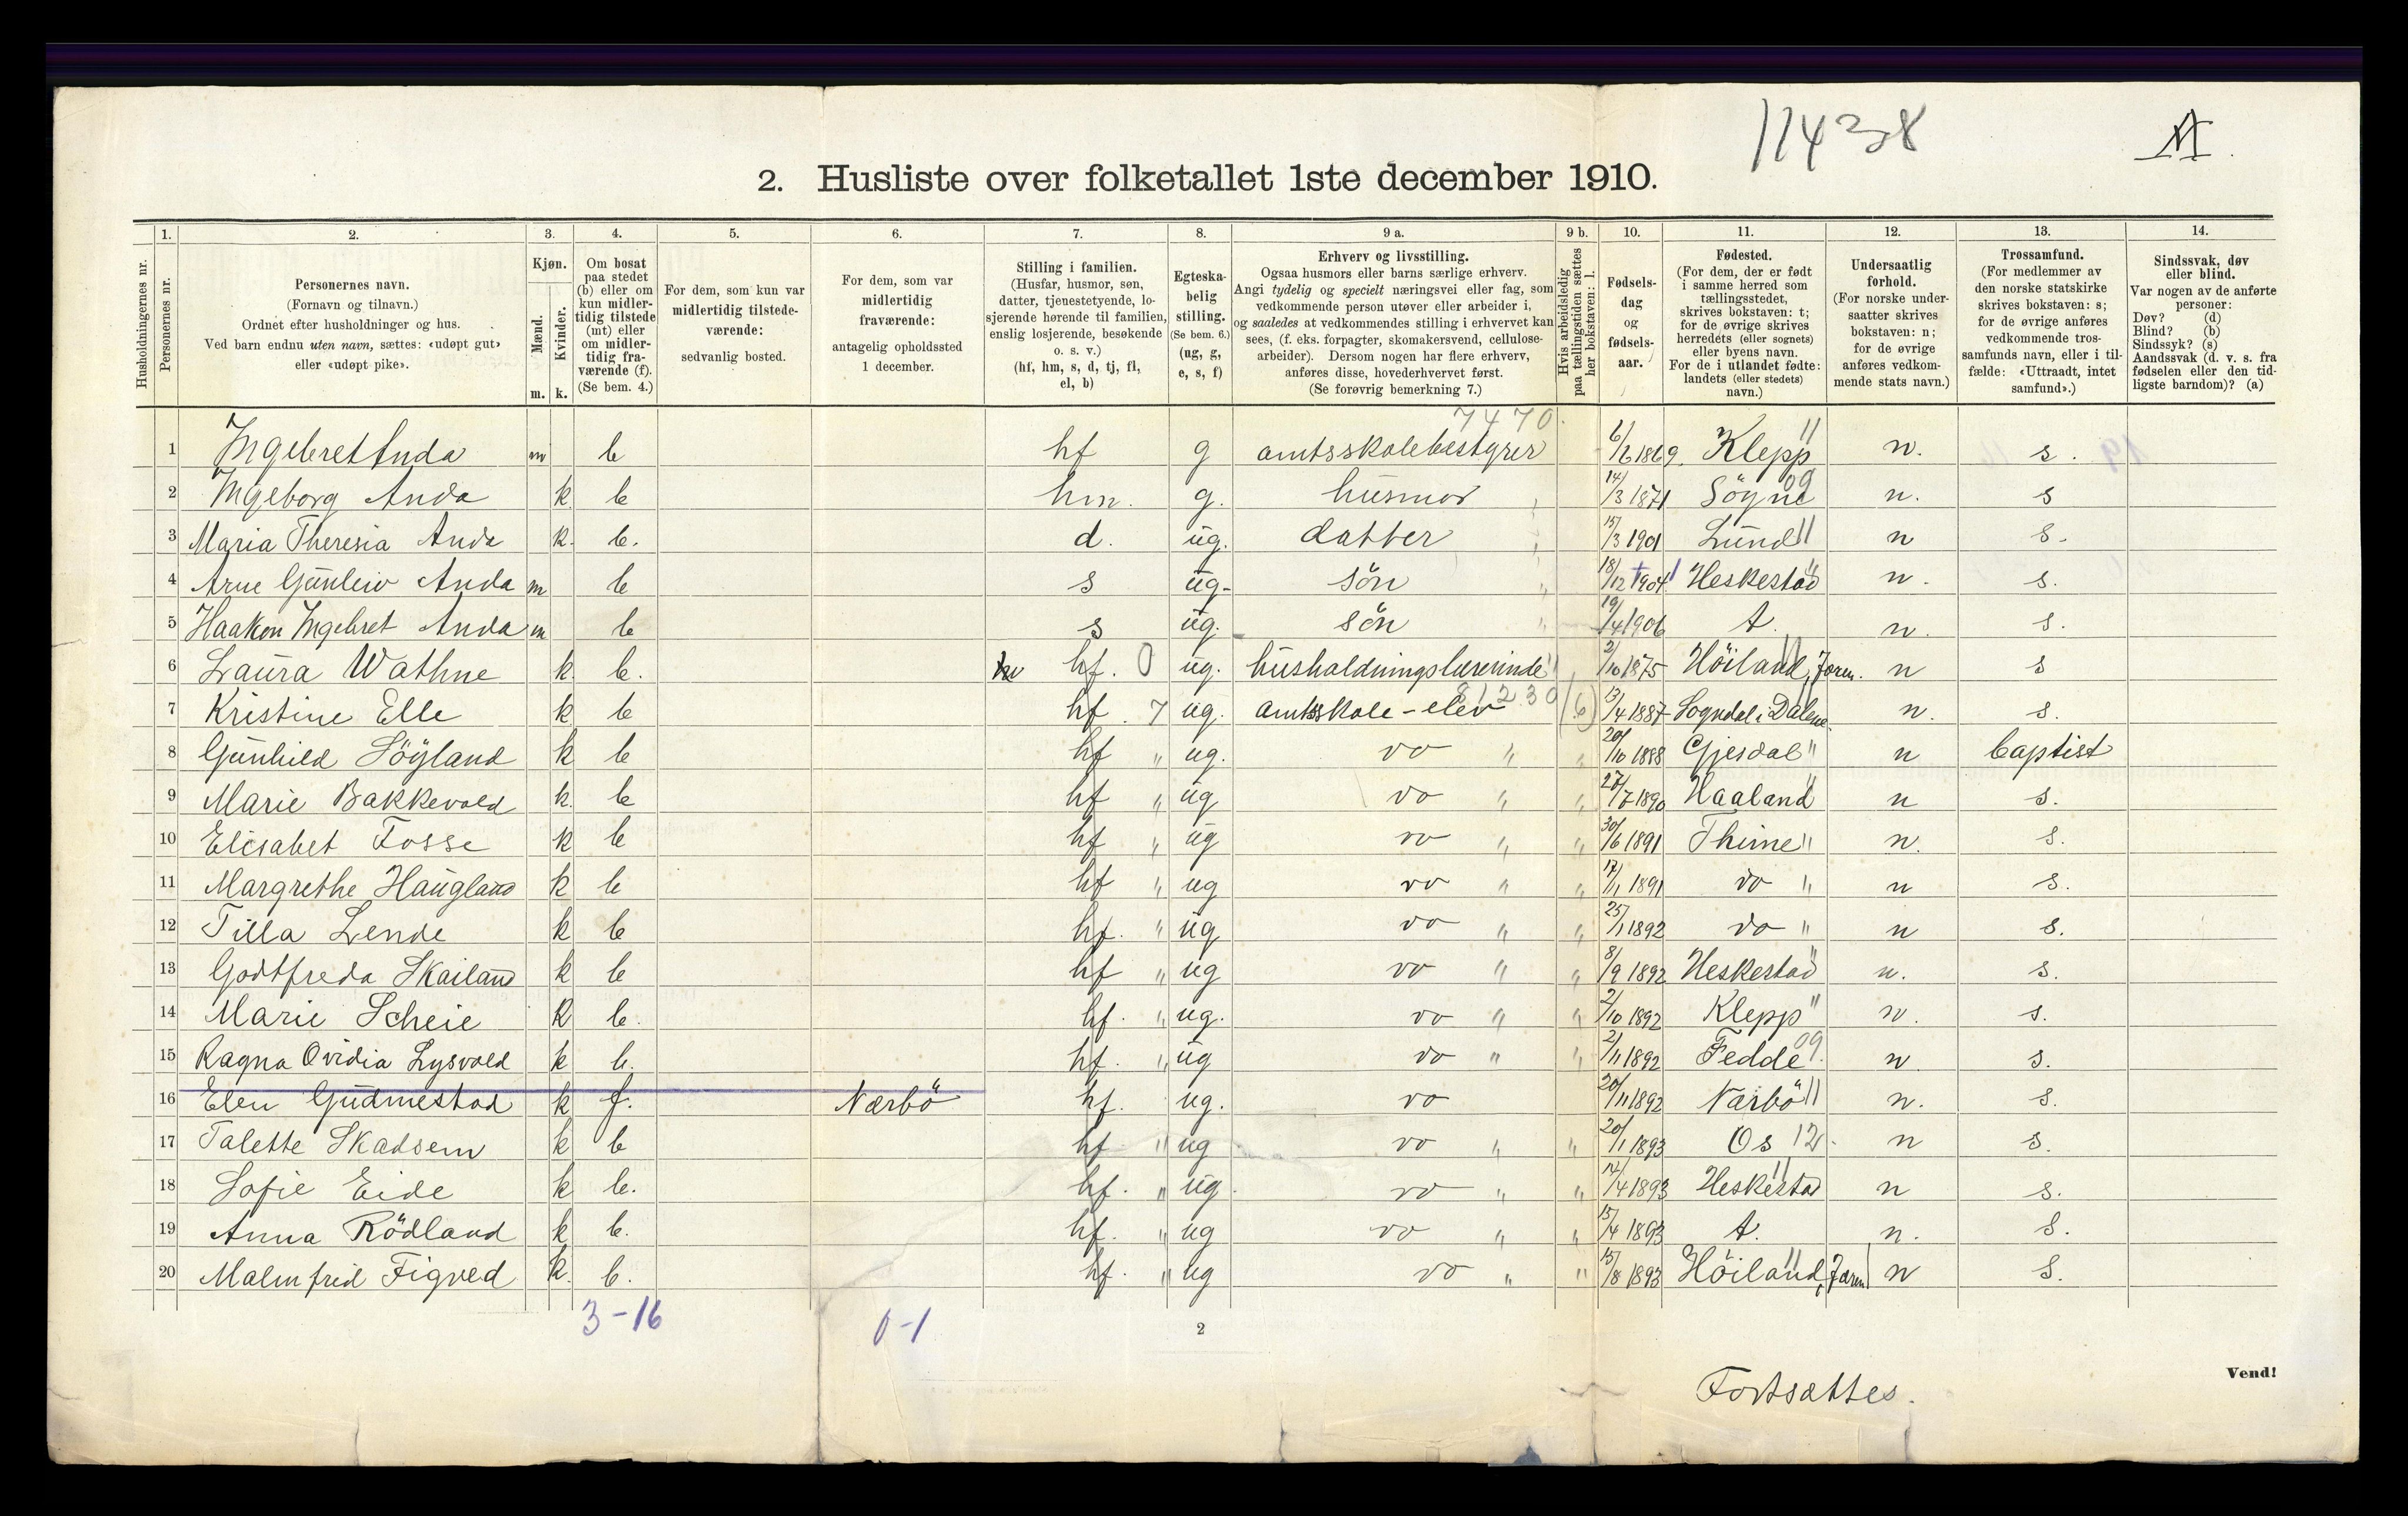 11438
2. Husliste over folketallet 1ste december 1910.
Husholdningernes nr.
1. Personernes nr.
2. Personernes navn. (Fornavn og tilnavn.) Ordnet efter husholdninger og hus. Ved barn endnu uten navn, sættes: «udøpt gut» eller «udøpt pike».
3. Kjøn. Mænd. m. Kvinder. k.
4. Om bosat paa stedet (b) eller om kun midlertidig tilstede (mt) eller om midlertidig fraværende (f). (Se bem. 4.)
5. For dem, som kun var midlertidig tilstedeværende: sedvanlig bosted.
6. For dem, som var midlertidig fraværende: antagelig opholdssted 1 december.
7. Stilling i familien. (Husfar, husmor, søn, datter, tjenestetyende, losjerende hørende til familien, enslig losjerende, besøkende o. s. v.) (hf, hm, s, d, tj, fl, el, b)
8. Egteskabelig stilling. (Se bem. 6.) (ug, g, e, s, f)
9 a. Erhverv og livsstilling. Ogsaa husmors eller barns særlige erhverv. Angi tydelig og specielt næringsvei eller fag, som vedkommende person utøver eller arbeider i, og saaledes at vedkommendes stilling i erhvervet kan sees, (f. eks. forpagter, skomakersvend, cellulosearbeider). Dersom nogen har flere erhverv, anføres disse, hovederhvervet først. (Se forøvrig bemerkning 7.)
9 b. Hvis arbeidsledig paa tællingstiden sættes her bokstaven: l.
10. Fødselsdag og fødselsaar.
11. Fødested. (For dem, der er født i samme herred som tællingsstedet, skrives bokstaven: t; for de øvrige skrives herredets (eller sognets) eller byens navn. For de i utlandet fødte: landets (eller stedets) navn.)
12. Undersaatlig forhold. (For norske undersaatter skrives bokstaven: n; for de øvrige anføres vedkommende stats navn.)
13. Trossamfund. (For medlemmer av den norske statskirke skrives bokstaven: s; for de øvrige anføres vedkommende trossamfunds navn, eller i tilfælde: «Uttraadt, intet samfund».)
14. Sindssvak, døv eller blind. Var nogen av de anførte personer: Døv? (d) Blind? (b) Sindssyk? (s) Aandssvak (d. v. s. fra fødselen eller den tidligste barndom)? (a)
7470
1 Ingebret Anda m b hf g amtsskolebestyrer 6/6 1869. Klepp 11 n. s.
2 Ingeborg Anda k b hm. g. husmor 14/3 1871 Sögne 09 n. s
3 Maria Theresia Anda k. b. d. ug. datter 15/3 1901 Lund 11 n s.
4 Arne Gunleiv Anda m b s ug- sön 18/12 1904 Heskestad " n. s.
5 Haakon Ingebret Anda m b s ug. sön 19/4 1906 t. n. s.
6 Laura Wathne k. b. hf. 0 ug. husholdningslærerinde 2/10 1875 Höiland, Jæren. n s
7 Kristine Elle k b hf. 7 ug. amtsskole-elev 81230 (6) 13/4 1887 Sogndal i Dalene n. s.
8 Gunhild Söyland k b hf " ug. do " " 20/10 1888 Gjesdal " n baptist
9 Marie Bakkevold k. b hf " ug do " " 27/7 1890 Haaland " n s.
10 Elisabet Fosse k b hf " ug do " " 30/6 1891 Thime " n. s.
11 Margrethe Haugland k b hf " ug do " " 17/1 1891 do " n s.
12 Tilla Lende k b hf. " ug do " " 25/1 1892 do " n s.
13 Godtfreda Skailand k b hf " ug do " " 8/9 1892 Heskestad " n. s.
14 Marie Scheie k b. hf. " ug. do " " 2/10 1892 Klepp " n. s.
15 Ragna Ovidia Lysvold k b. hf. " ug do " " 2/11 1892 Fedde 09. n s.
16 Elen Gudmestad k f. Nærbö hf. ug. do 20/11 1892 Nærbö 11 n. s.
17 Talette Skadsem k b hf " ug do " " 20/1 1893 Os 12. n s.
18 Sofie Eide k b. hf. " ug. do " " 14/4 1893 Heskestad 11 n s.
19 Anna Rödland k b. hf. " ug do " " 15/4 1893 t. n. s.
20 Malmfrid Figved k. b. hf. " ug do " " 15/8 1893 Höiland, Jæren 11 n s.
3-16
0-1
2
Vend!
Fortsættes.